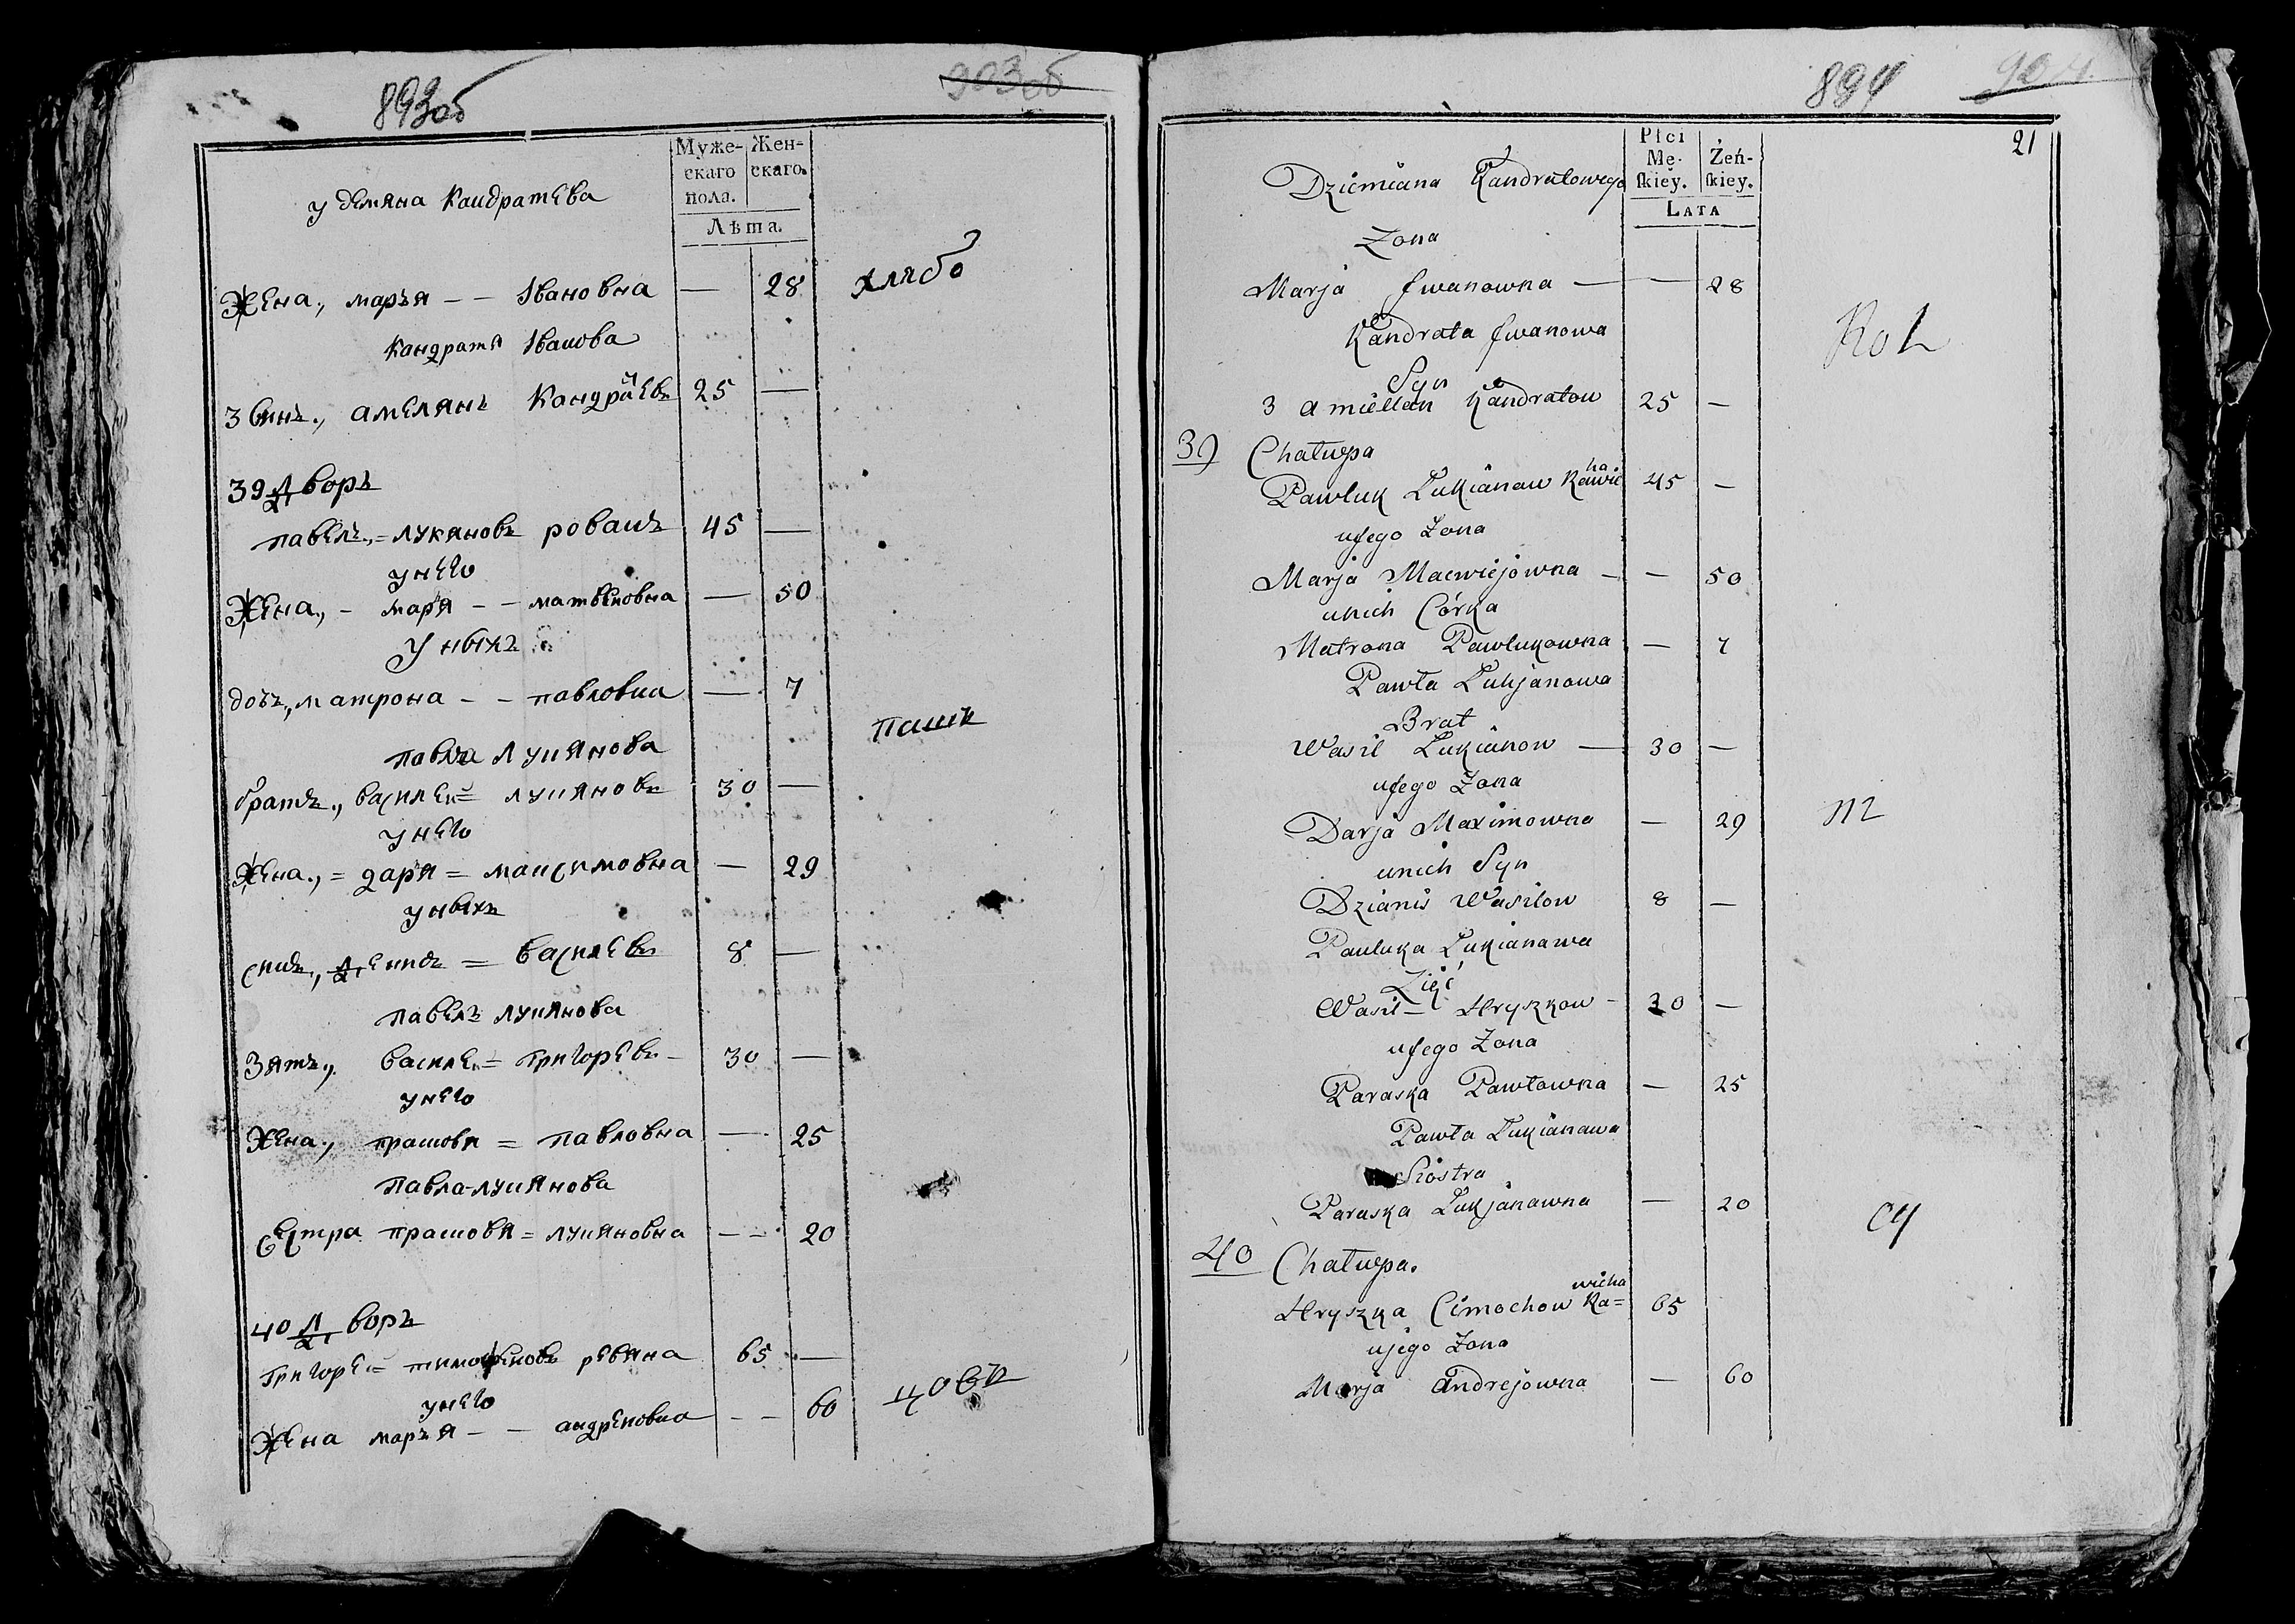 893об
903об
Муже-
скаго
пола.
Жен-
скаго.
Лѣта.
у демяна Кондратева
Жена, маръя - - Iвановна — 28 хлябо
Кандратя Iванова
3 Синъ, амелянъ Кондратевъ 25 —
39 Дворъ
павелъ = лукяновъ ровашъ 45 —
унего
Жена, - маря - - матвеновна — 50
уныхъ
дочъ, матрона - - павловна — 7
павла Лукянова пашк
братъ, василеи = лукяновъ 30 —
унего
Жена, = даря = максимовна — 29
уныхъ
синъ, Денисъ = василевъ 8 —
павелъ лукянова
Зятъ, василеи = григоревъ - 30 —
унего
Жена, прасковя = павловна — 25
павла-лукянова
сестра прасковя = лукяновна - - 20
40 Дворъ
григореи = тимофеновъ ревяна 65 —
унего
Жена маръя - - андреновна - - 60 цови
894
904
21
Płci
Mę-
skiey.
Żeń-
skiey.
Lata
Dziemiana Kandratowego
Zona
Marja Jwanowna — — 28
Kandrata Jwanowa
Kol
Syn
3 amiellan Kandratow 25 —
39 Chałupa
Pawluk Lukianaw Kawic 45 —
ha
ujego Zona
Marja Macwiejowna - — 50
unich Córka
Matrona Pawlukowna — 7
Pawła Lukjanowa
Brat
Wasil Lukianow — 30 —
ujego Zona
Darja Maximowna — 29 m
unich Syn
Dzianis Wasilow 8 —
Pauluka Lukianawa
Zięć
Wasil — Hryszkow - 30 —
ujego Zona
Paraska Pawłowna — 25
Pawła Lukianawa
Siostra
Paraska Lukjanawna — 20
40 Chałupa.
wicha
Hryszka Cimochow Ka= 65
ujego Zona
Marja andrejowna — 60